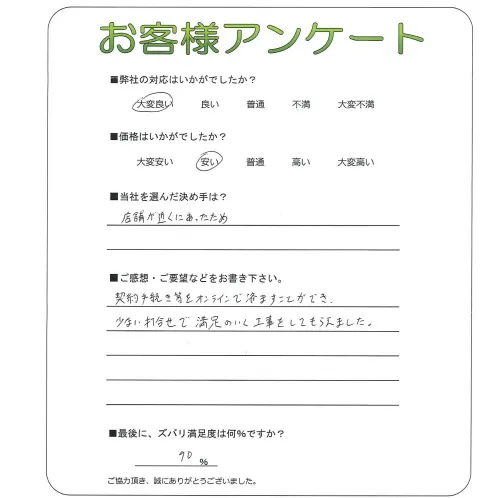 お客様アンケート
■弊社の対応はいかがでしたか？
大変良い 良い 普通 不満 大変不満
■価格はいかがでしたか？
大変安い 安い 普通 高い 大変高い
■当社を選んだ決め手は？
店舗が近くにあったため
■ご感想・ご要望などをお書き下さい。
契約手続き等をオンラインで済ますことができ、
少ない打合せで満足のいく工事をしてもらえました。
■最後に、ズバリ満足度は何％ですか？
90 ％
ご協力頂き、誠にありがとうございました。